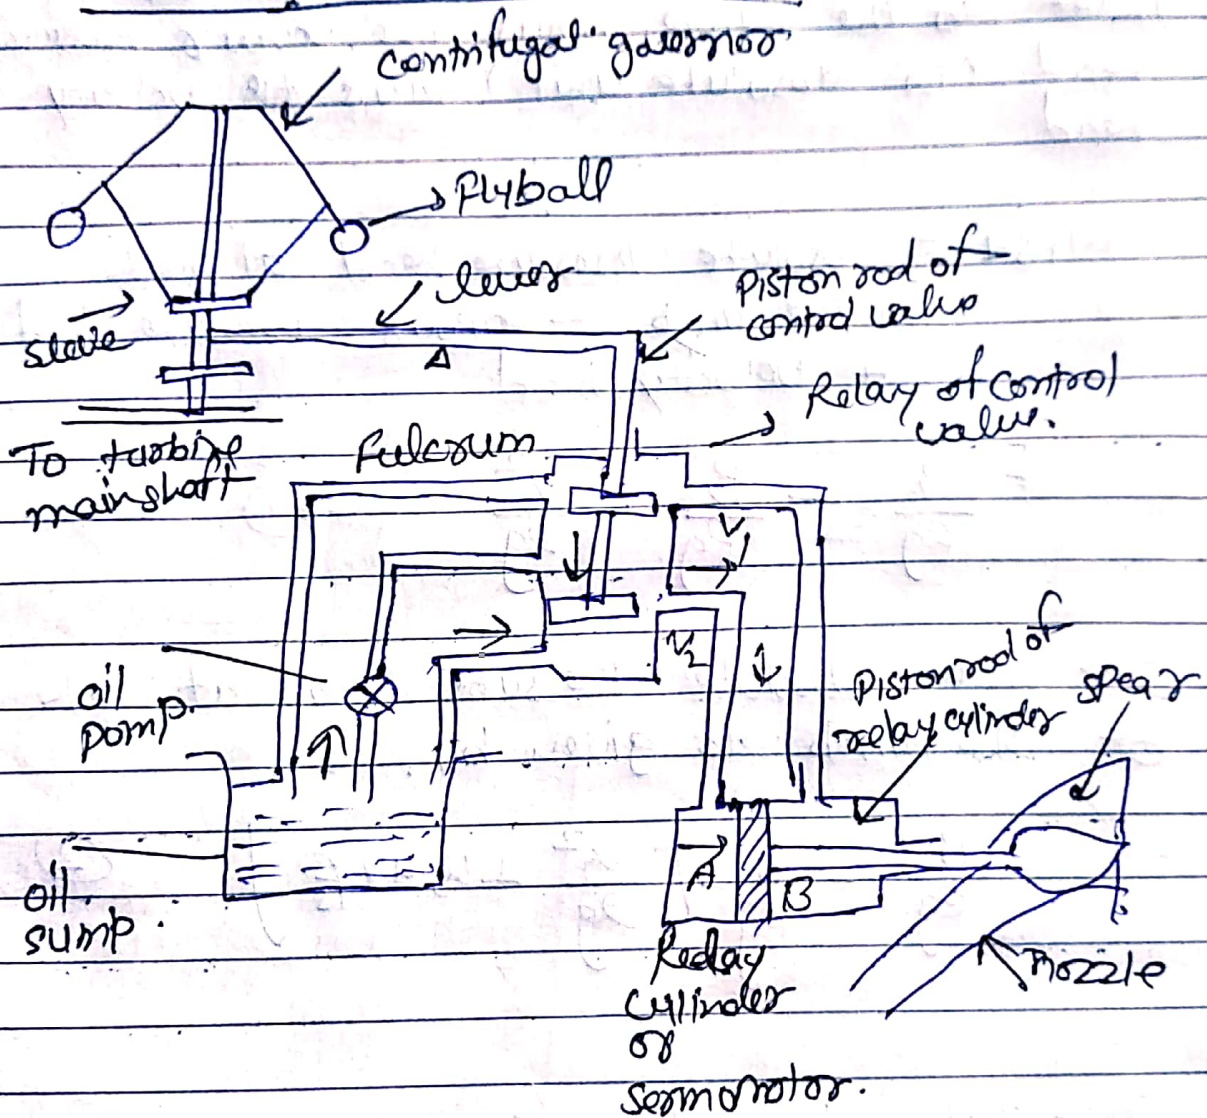 Centrifugal governor
Flyball
lever
Piston rod of
control valve
sleve
Relay of control
valve.
To turbine
mainshaft
Fulcrum
V1
V2
Piston rod of
relay cylinder
spear
oil
pomp.
A
B
oil
sump.
Relay
cylinder
or
sermomotor.
Nozzle